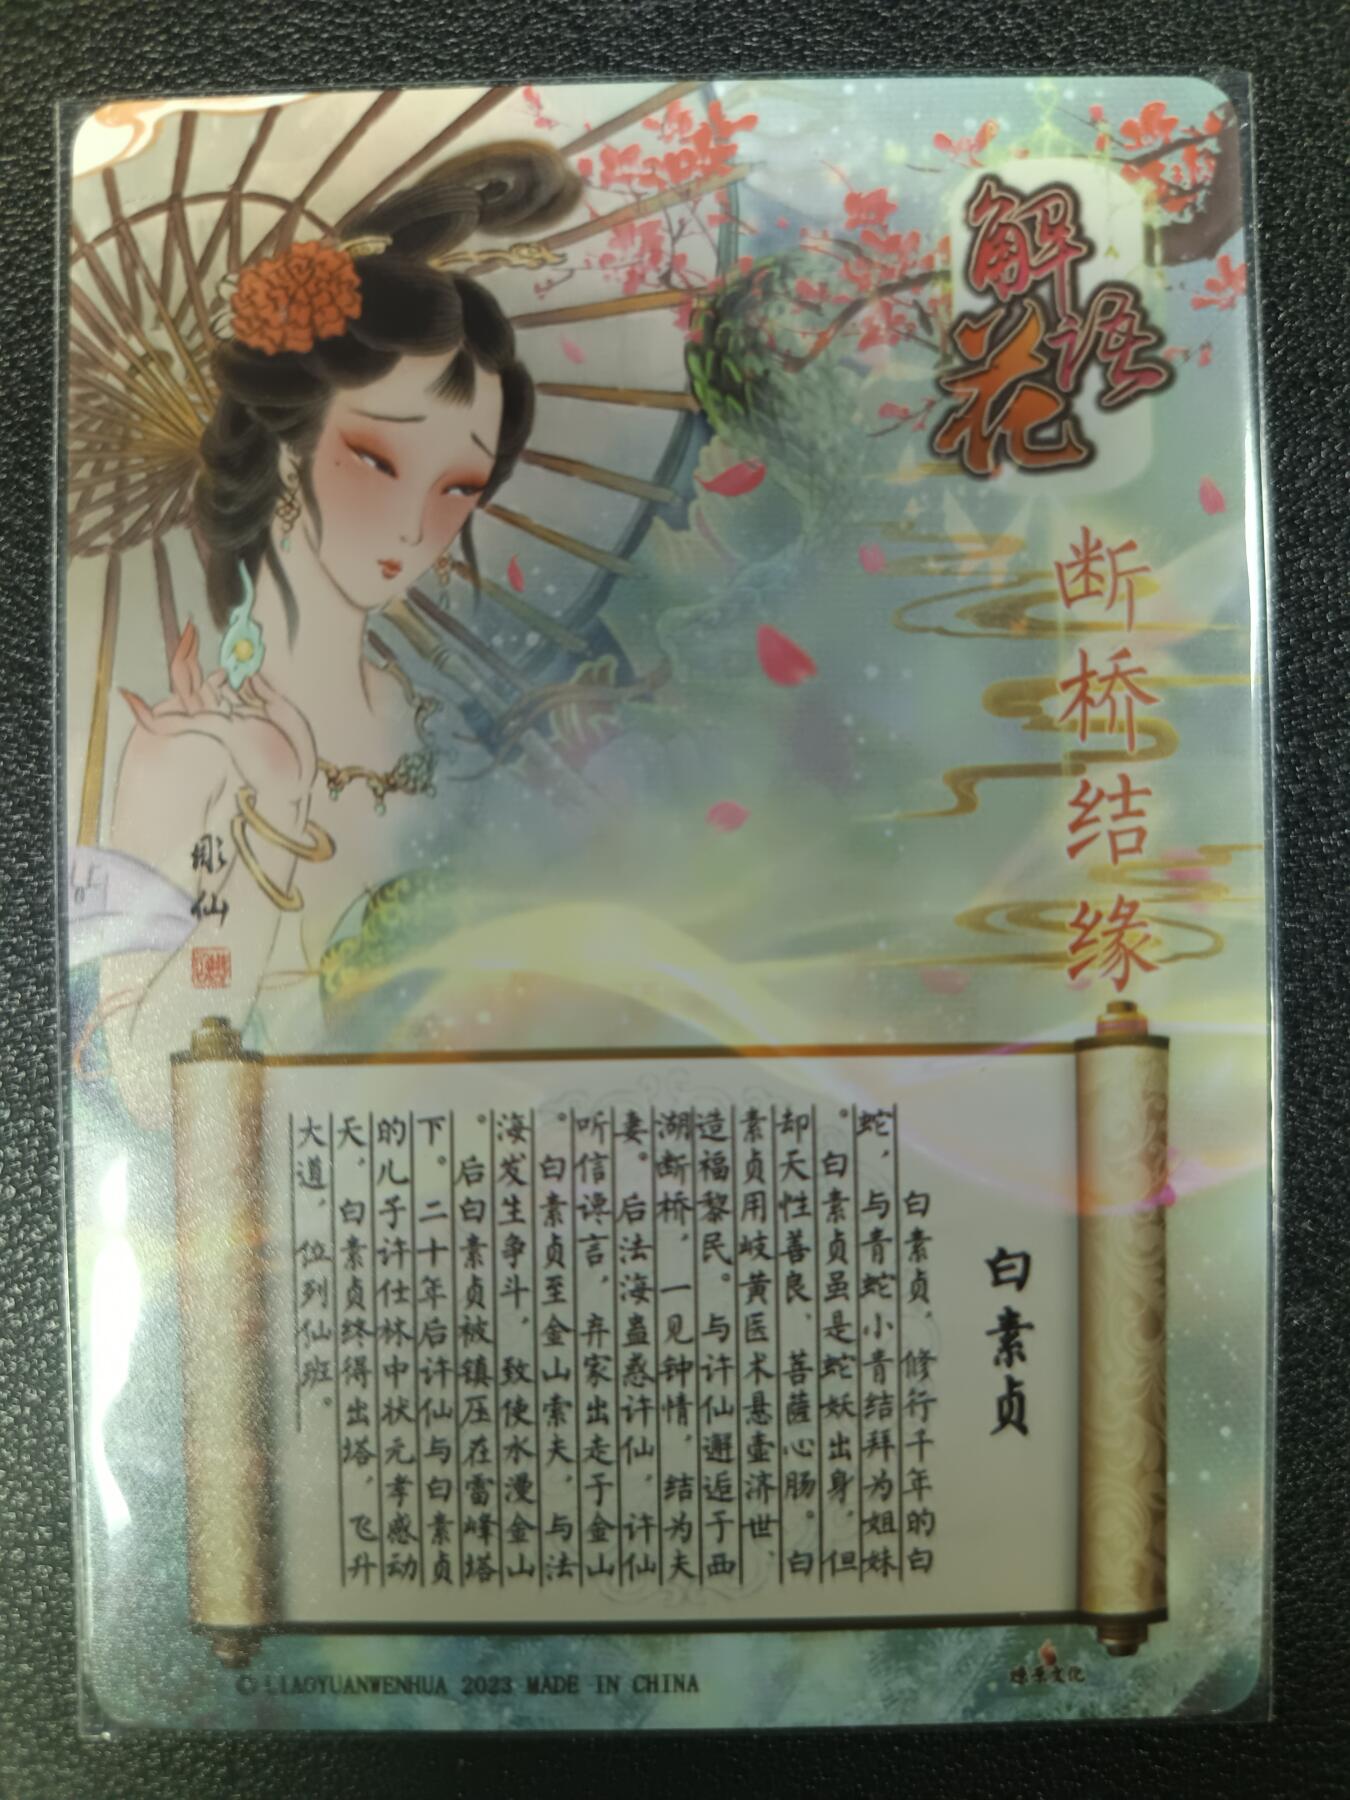 解语花
断桥结缘
彫仙
白素贞
白素贞，修行千年的白
蛇，与青蛇小青结拜为姐妹
。白素贞虽是蛇妖出身，但
却天性善良，菩萨心肠。白
素贞用岐黄医术悬壶济世，
造福黎民。与许仙邂逅于西
湖断桥，一见钟情，结为夫
妻。后法海蛊惑许仙，许仙
听信谗言，弃家出走于金山
。白素贞至金山索夫，与法
海发生争斗，致使水漫金山
。后白素贞被镇压在雷峰塔
下。二十年后许仙与白素贞
的儿子许仕林中状元孝感动
天，白素贞终得出塔，飞升
大道，位列仙班。
© LIAOYUANWENHUA 2023 MADE IN CHINA
燎原文化